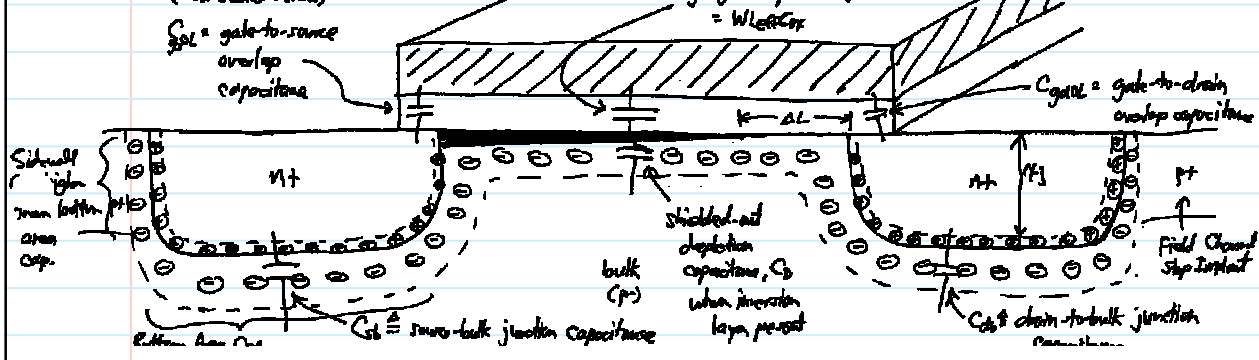 = WLeffCox
CgsOL = gate-to-source
overlap
capacitance
CgdOL = gate-to-drain
overlap capacitance
ΔL
Sidewall
area
cap.
p+
n+
n+
Xj
p+
Field Channel
Stop Implant
shielded-out
depletion
capacitance, CD
when inversion
layer present
bulk
(p-)
Csb ≜ source-bulk junction capacitance
Cdb ≜ drain-to-bulk junction
capacitance
Bottom Area Cap